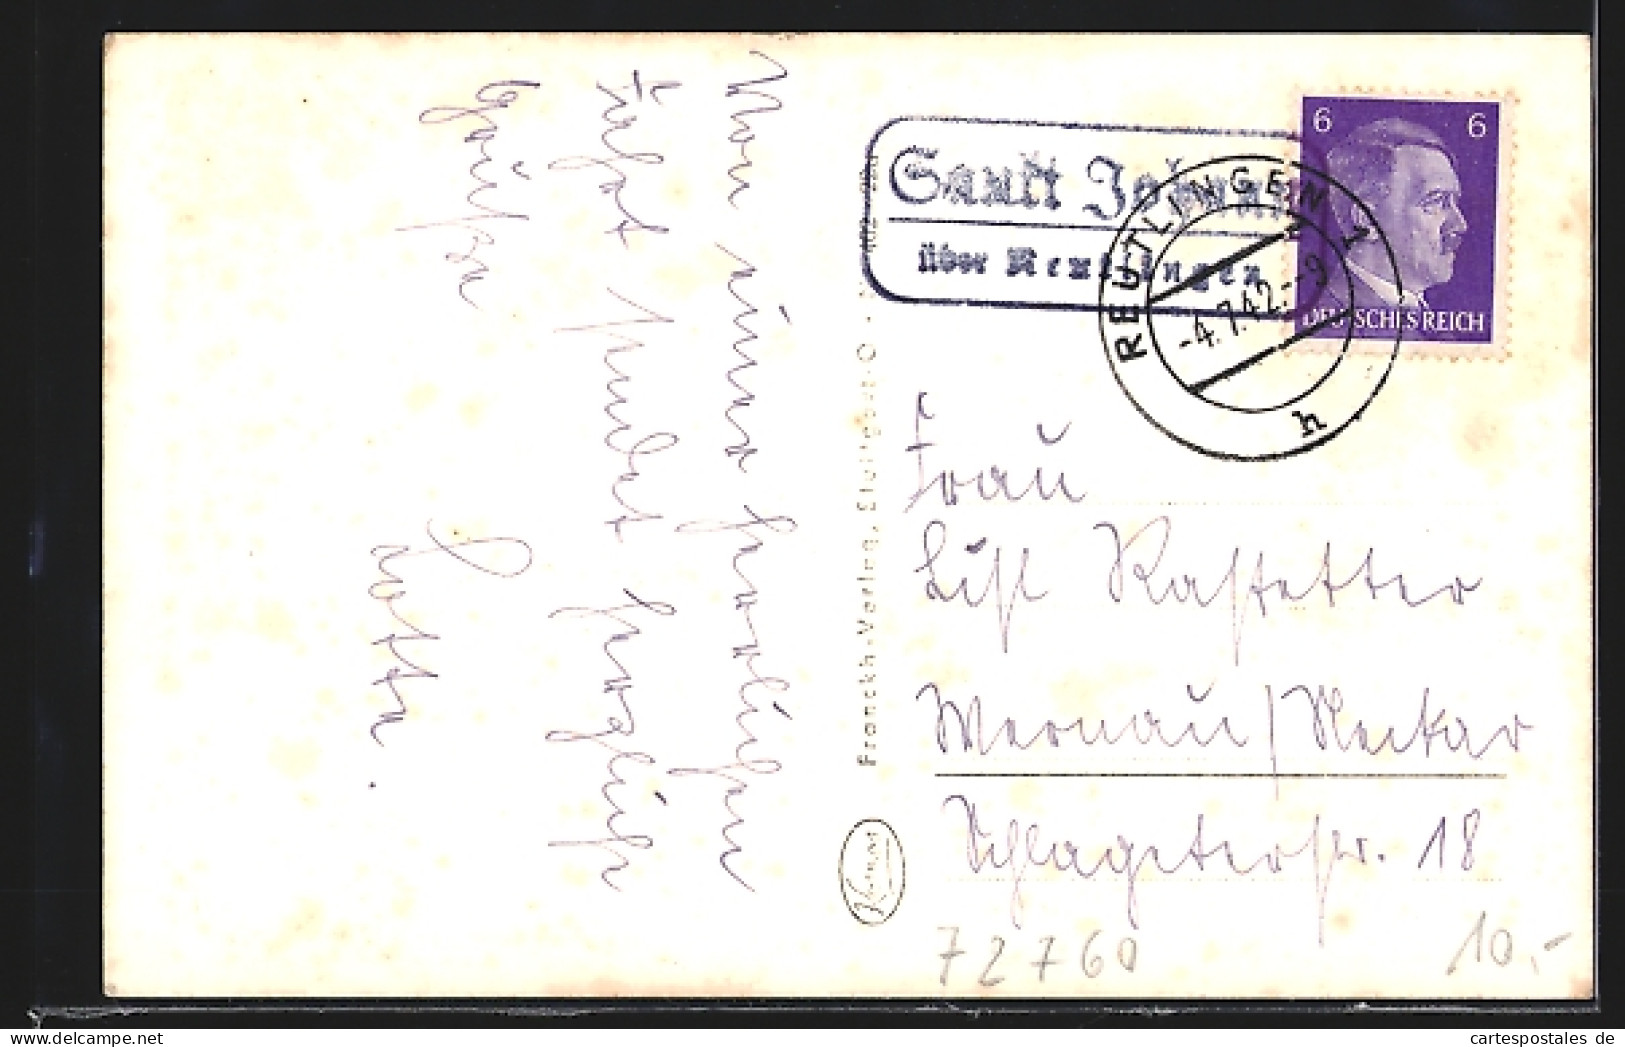 Von einer herrlichen
Fahrt sendet herzliche
Grüße
Lotte.
Franckh-Verlag, Stuttgart-O
Sankt Johann
über Reutlingen
REUTLINGEN 1
-4.7.42.-9
h
6 6
DEUTSCHES REICH
Frau
Lisl Rastetter
Wernau/Neckar
Schlageterstr. 18
72760
10,-
cartespostales de